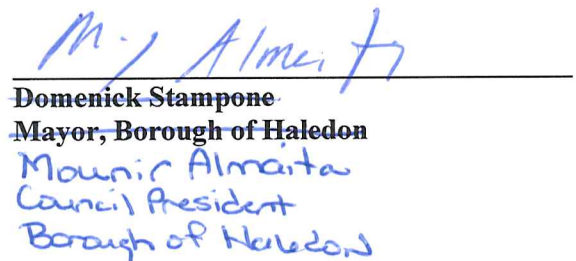 M. Almaita
Domenick Stampone
Mayor, Borough of Haledon
Mounir Almaita
Council President
Borough of Haledon